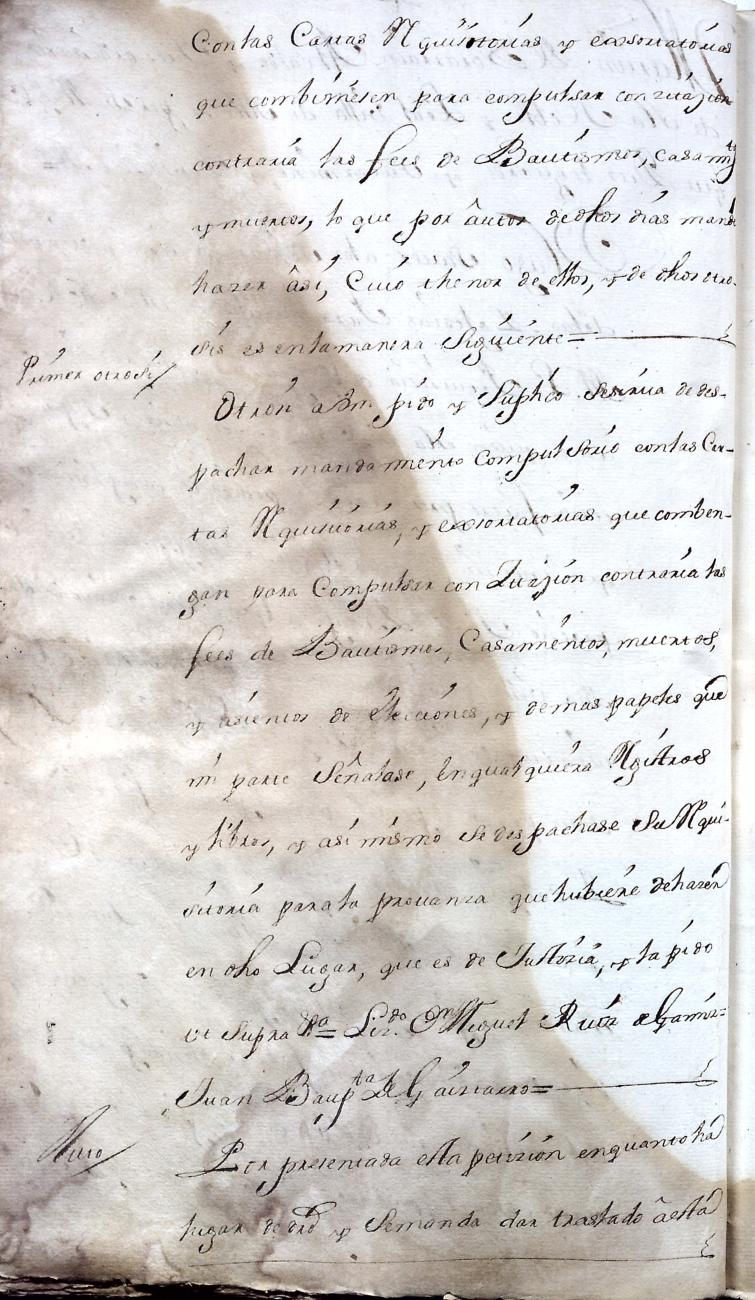 Con las Cartas Rquisitorias y exsortatorias
que combiniesen para compulsar con zitazion
contraria las fees de Bautismos, casamtos
y muertos, lo que por autos de dhos dias mande
hazer asi, Cuio thenor de ellos, y de dhos otro-
sis es en la manera Siguiente =
Primer otrosi
Otrosi a Vm pido y Supco se sirua de des-
pachar mandamiento Compulsorio con las Car-
tas Rquisitorias, y exsortatorias que comben-
gan para Compulsar con Zitazion contraria las
fees de Bautismos, Casamientos, muertos,
y asientos de elecciones, y demas papeles que
mi parte Señalase, en qualquiera Rgistros
y libros, y asi mismo se despachase Su Rqui-
sitoria para la prouanza que hubiere de hazer
en dho Lugar, que es de Justizia, y la pido
ut Supra Lizdo Dn Miguel Ruiz de Gamiz =
Juan Baupta de Gaistarro =
Auto
Por presentada esta petizion en quanto ha
lugar de dro y Se manda dar traslado a esta